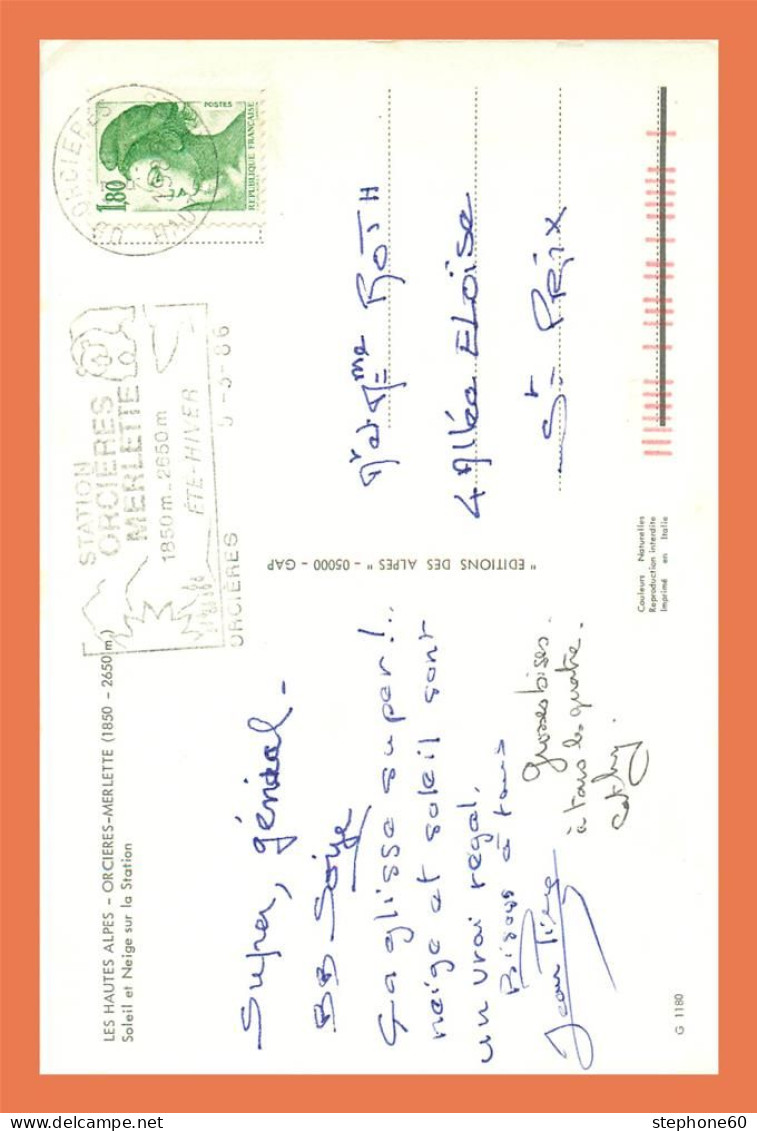 LES HAUTES ALPES - ORCIERES-MERLETTE (1850 - 2650 m)
Soleil et Neige sur la Station
Super, génial -
BB Soige
Ça glisse super!..
neige et soleil sont
un vrai régal.
Bisous à tous
Jean Pierre
grosses bises.
à tous les quatre.
Cathy.
G 1180
"EDITIONS DES ALPES" - 05000 - GAP
Couleurs Naturelles
Reproduction interdite
Imprimé en Italie
STATION
ORCIÈRES
MERLETTE
1850m - 2650m
ÉTÉ-HIVER
ORCIÈRES
5-3-86
05 ORCIERES
1986
HAUTES
POSTES
1,80
REPUBLIQUE FRANÇAISE
Mr et Mme ROTH
4 Allée ELOISE
St PRIX
stephone60